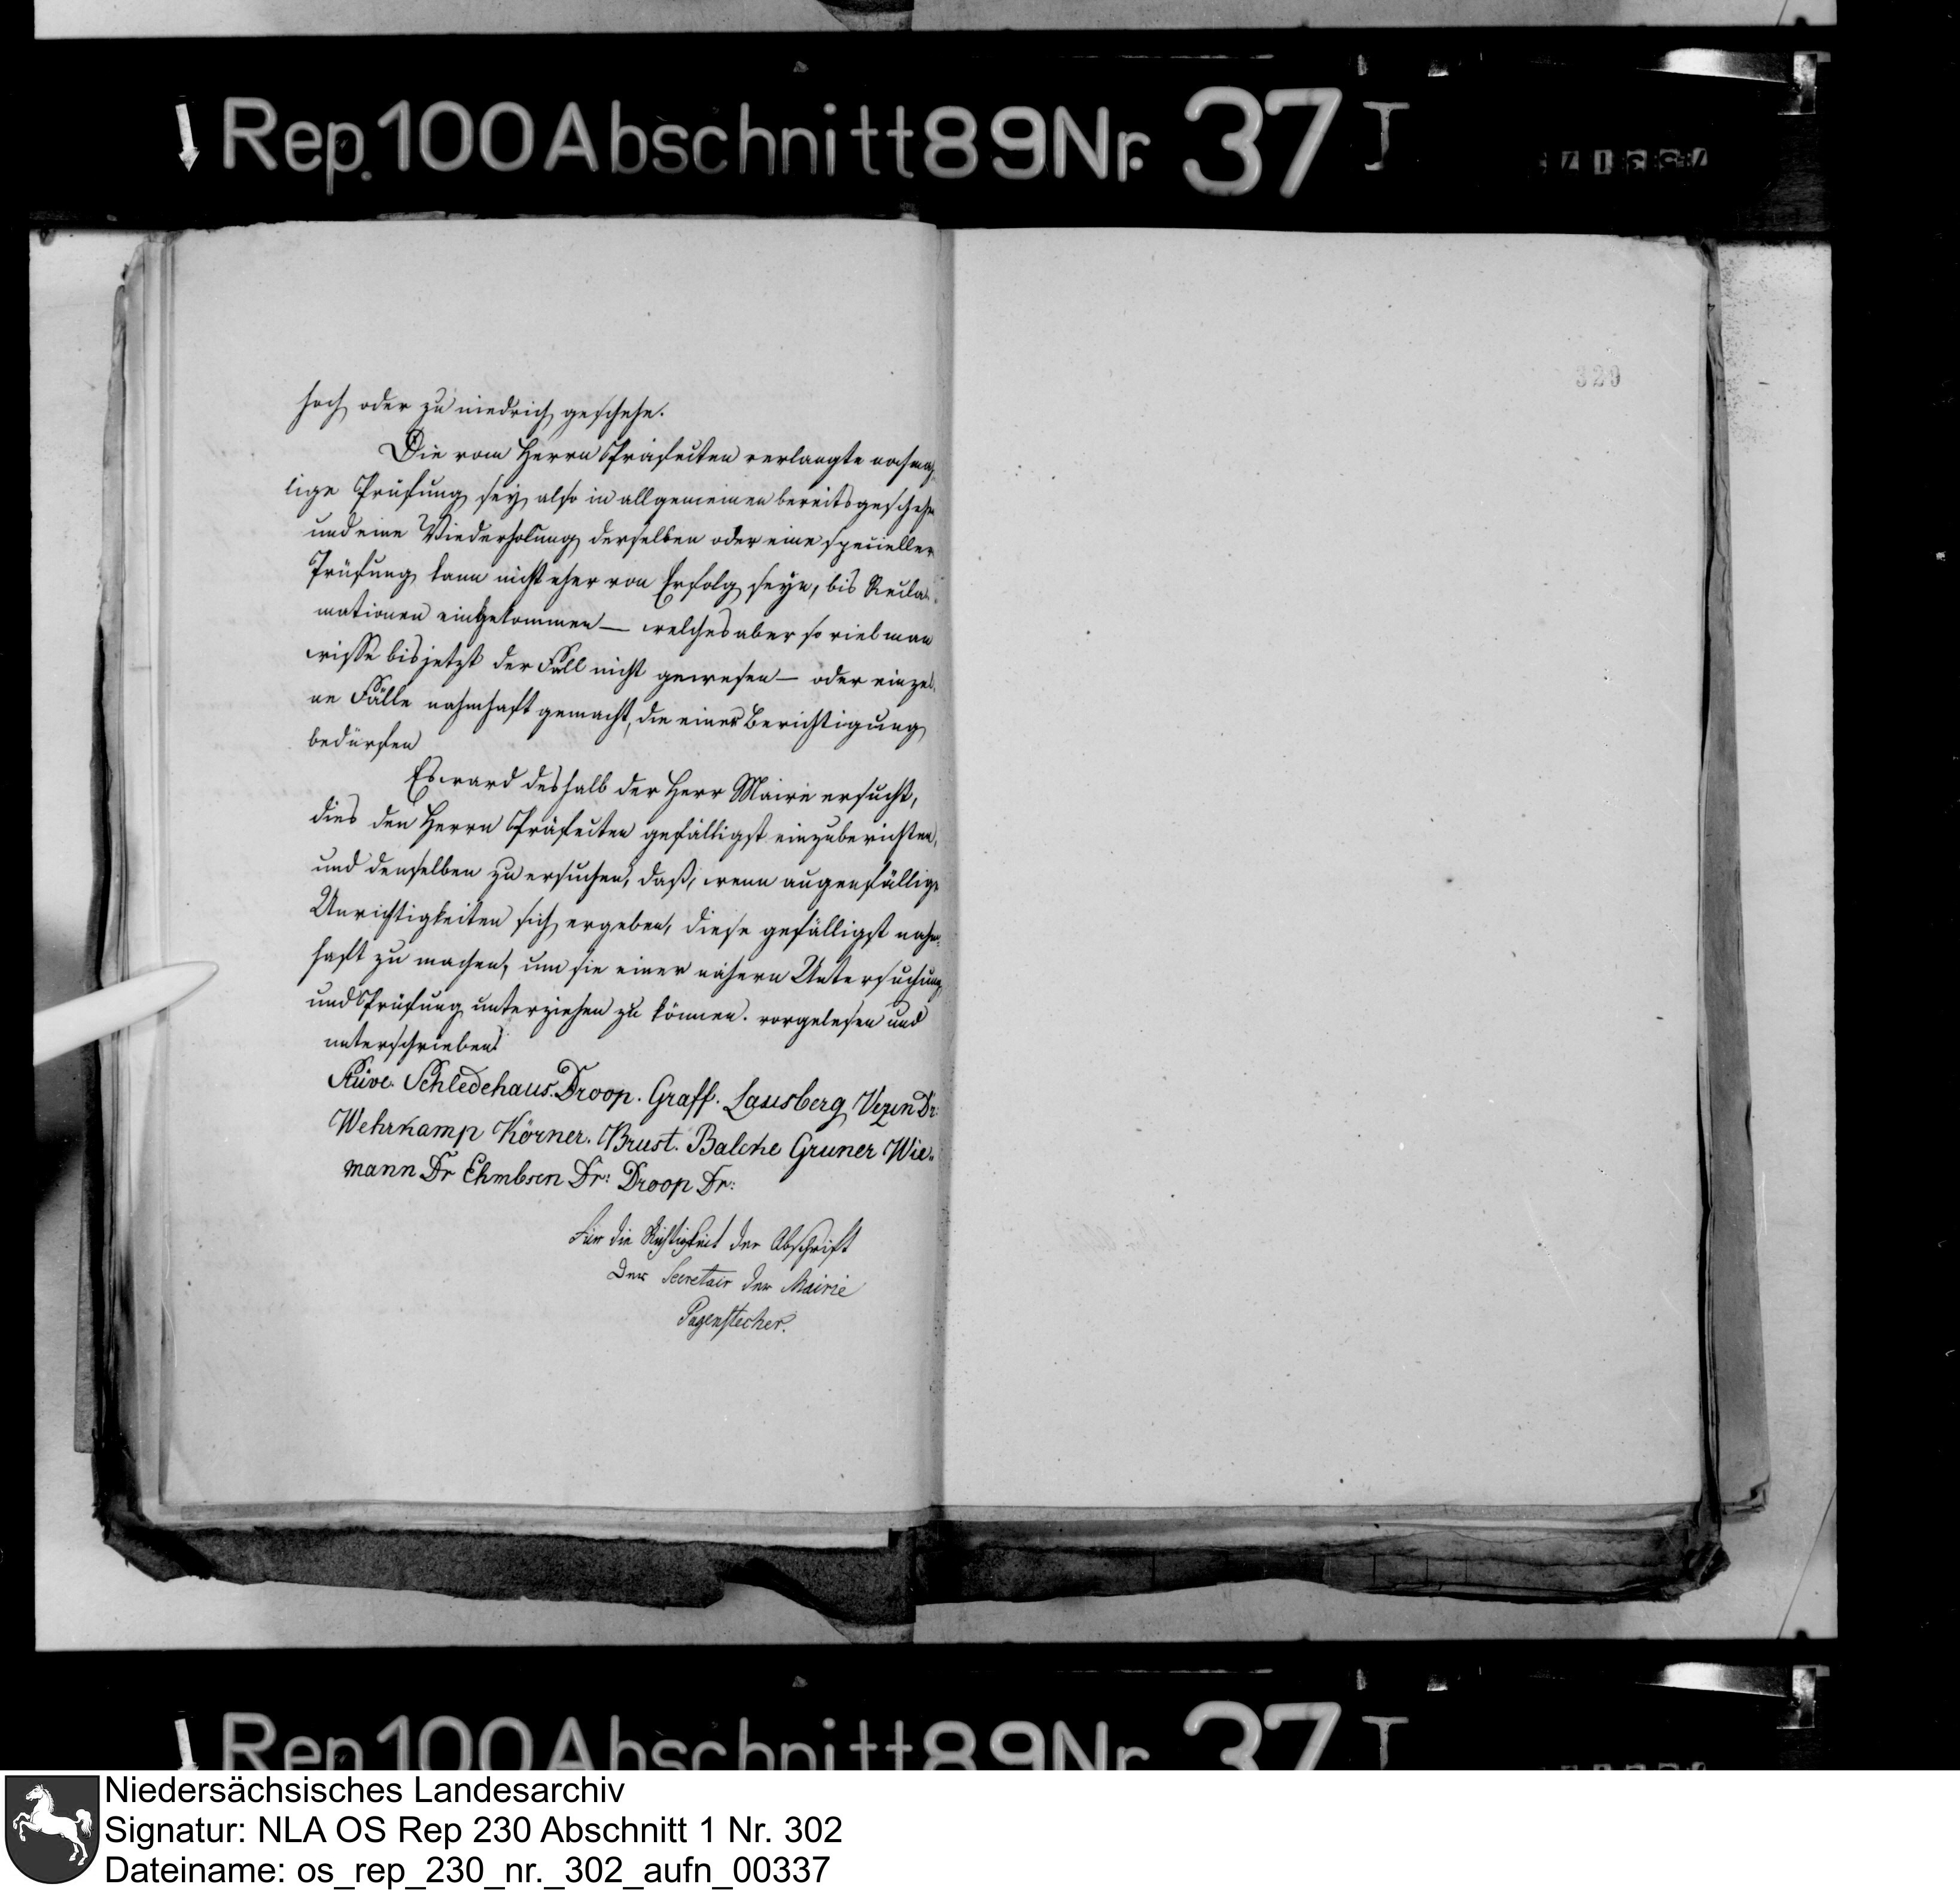 Rep. 100 Abschnitt 89 Nr. 37 I
329
hoch oder zu niedrich geschehe.
Die vom Herrn Präfecten verlangte nochma¬
lige Prüfung sey also in allgemeinen bereits geschehen
und eine Wiederholung derselben oder eine specieller
Prüfung kann nicht eher von Erfolg seyn, bis Recla¬
mationen eingekommen — welches aber so viel man
wisse bis jetzt der Fall nicht gewesen — oder einzel¬
ne Fälle nahmhaft gemacht, die einer Berichtigung
bedürfen
Es ward deshalb der Herr Maire ersucht,
dies den Herrn Präfecten gefälligst einzuberichten,
und denselben zu ersuchen, daß, wenn augenfällige
Unrichtigkeiten sich ergeben, diese gefälligst nahm¬
haft zu machen, um sie einer nähern Untersuchung
und Prüfung unterziehen zu können. vorgelesen und
unterschrieben
Stüve. Schledehaus. Droop. Graff. Lausberg Vezin Dr:
Wehrkamp Körner. Brust. Balcke Gruner Wie¬
mann Dr Ehmbsen Dr: Droop Dr:
Für die Richtigkeit der Abschrift
Der Secretair der Mairie
Pagenstecher.
Rep. 100 Abschnitt 89 Nr. 37 I
Niedersächsisches Landesarchiv
Signatur: NLA OS Rep 230 Abschnitt 1 Nr. 302
Dateiname: os_rep_230_nr._302_aufn_00337